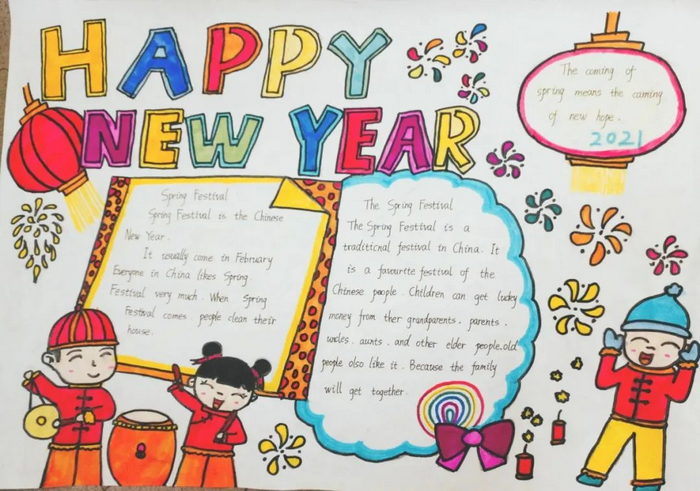 HAPPY
NEW YEAR
The coming of
spring means the coming
of new hope.
2021
Spring Festival
Spring Festival is the Chinese
New Year.
It usually come in February
Everyone in China likes Spring
Festival very much. When Spring
Festival comes people clean their
house.
The Spring Festival
The Spring Festival is a
traditional festival in China. It
is a favourite festival of the
Chinese people. Children can get lucky
money from ther grandparents. parents.
uncles. aunts. and other elder people.old
people also like it. Because the family
will get together.